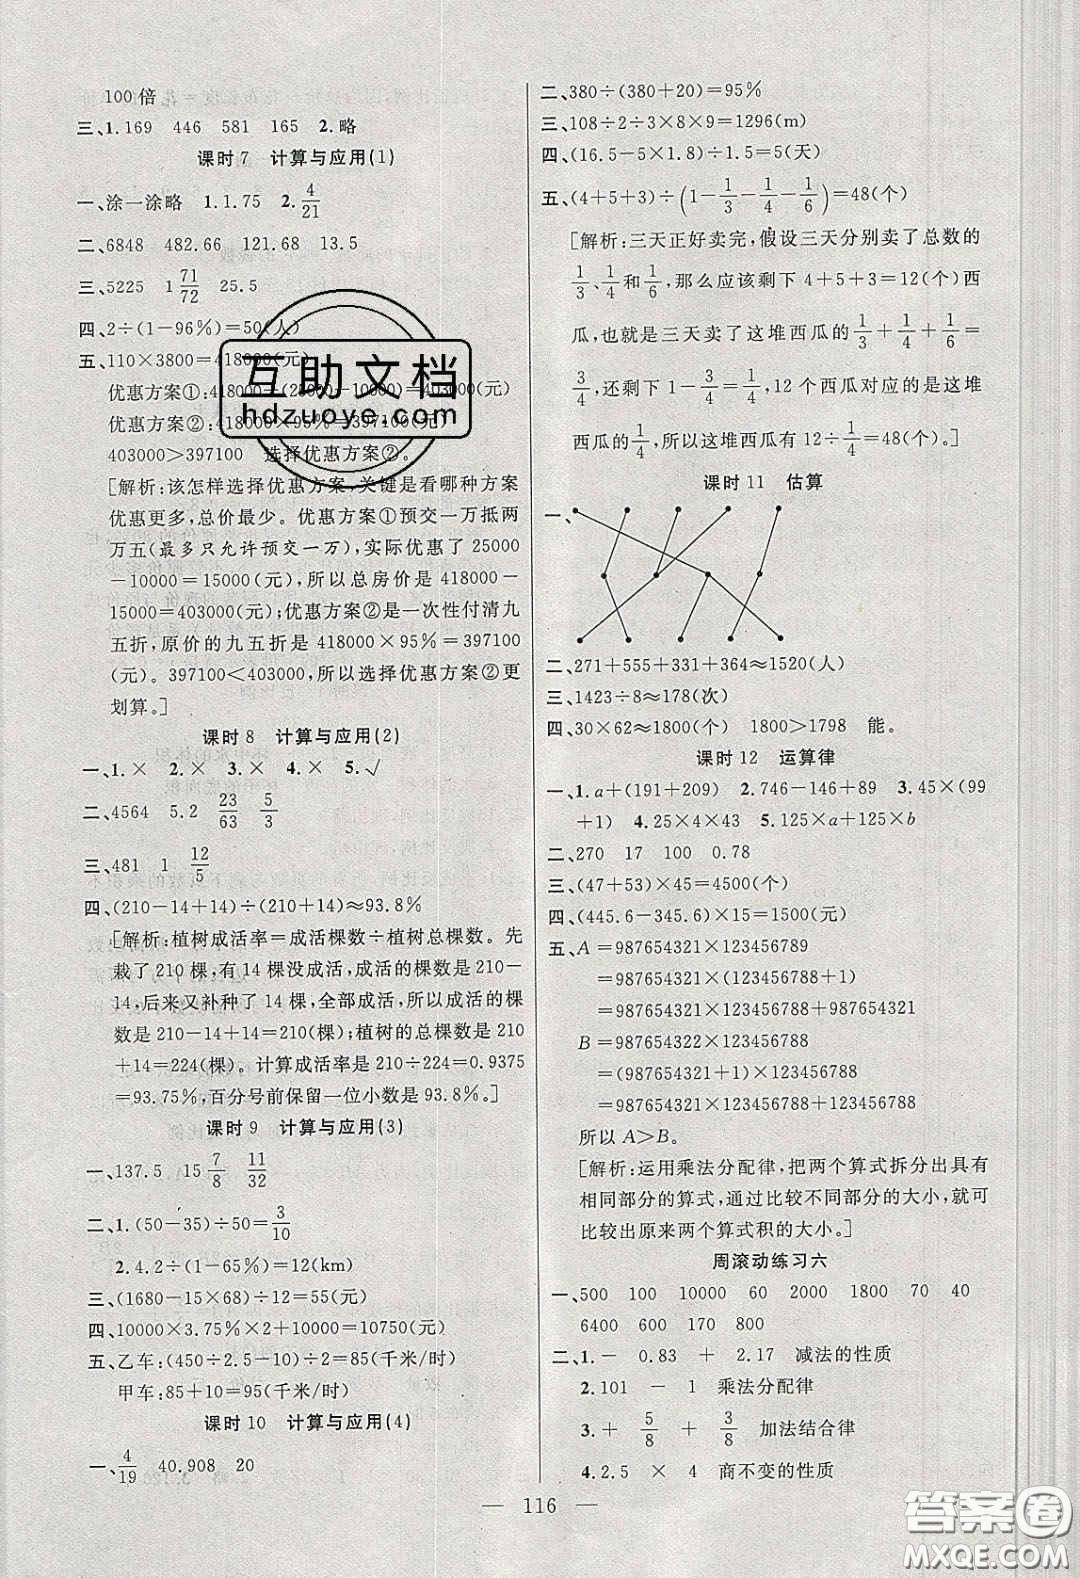 100倍
三、1.169 446 581 165 2.略
课时7 计算与应用(1)
一、涂一涂略 1.1.75 2.4/21
二、6848 482.66 121.68 13.5
三、5225 1 71/72 25.5
四、2÷(1-96%)=50(人)
五、110×3800=418000(元)
优惠方案①:418000-(25000-10000)=403000(元)
优惠方案②:418000×95%=397100(元)
403000>397100 选择优惠方案②。
[解析:该怎样选择优惠方案,关键是看哪种方案
优惠更多,总价最少。优惠方案①预交一万抵两
万五(最多只允许预交一万),实际优惠了25000
-10000=15000(元),所以总房价是418000-
15000=403000(元);优惠方案②是一次性付清九
五折,原价的九五折=418000×95%=397100
(元)。397100<403000,所以选择优惠方案②更
划算。]
课时8 计算与应用(2)
一、1.× 2.× 3.× 4.× 5.√
二、4564 5.2 23/63 5/3
三、481 1 12/5
四、(210-14+14)÷(210+14)≈93.8%
[解析:植树成活率=成活棵数÷植树总棵数。先
栽了210棵,有14棵没成活,成活的棵数是210-
14,后来又补种了14棵,全部成活,所以成活的棵
数是210-14+14=210(棵);植树的总棵数是210
+14=224(棵)。计算成活率是210÷224=0.9375
=93.75%,百分号前保留一位小数是93.8%。]
课时9 计算与应用(3)
一、137.5 15 7/8 11/32
二、1.(50-35)÷50=3/10
2.4.2÷(1-65%)=12(km)
三、(1680-15×68)÷12=55(元)
四、10000×3.75%×2+10000=10750(元)
五、乙车:(450÷2.5-10)÷2=85(千米/时)
甲车:85+10=95(千米/时)
课时10 计算与应用(4)
一、4/19 40.908 20
二、380÷(380+20)=95%
三、108÷2÷3×8×9=1296(m)
四、(16.5-5×1.8)÷1.5=5(天)
五、(4+5+3)÷(1-1/3-1/4-1/6)=48(个)
[解析:三天正好卖完,假设三天分别卖了总数的
1/3、1/4和1/6,那么应该剩下4+5+3=12(个)西
瓜,也就是三天卖了这堆西瓜的1/3+1/4+1/6=
3/4,还剩下1-3/4=1/4,12个西瓜对应的是这堆
西瓜的1/4,所以这堆西瓜有12÷1/4=48(个)。]
课时11 估算
一、
二、271+555+331+364≈1520(人)
三、1423÷8≈178(次)
四、30×62≈1800(个) 1800>1798 能。
课时12 运算律
一、1.a+(191+209) 2.746-146+89 3.45×(99
+1) 4.25×4×27 5.125×a+125×b
二、270 17 100 0.78
三、(47+53)×45=4500(个)
四、(445.6-345.6)×15=1500(元)
五、A=987654321×123456789
=987654321×(123456788+1)
=987654321×123456788+987654321
B=987654322×123456788
=(987654321+1)×123456788
=987654321×123456788+123456788
所以A>B。
[解析:运用乘法分配律,把两个算式拆分出具有
相同部分的算式,通过比较不同部分的大小,就可
比较出原来两个算式积的大小。]
周滚动练习六
一、500 100 10000 60 2000 1800 70 40
6400 600 170 800
二、1.- 0.83 + 2.17 减法的性质
2.101 - 1 乘法分配律
3.+ 5/8 + 3/8 加法结合律
4.2.5 × 4 商不变的性质
— 116 —
互助文档
hdzuoye.com
答案圈
MXQE.COM